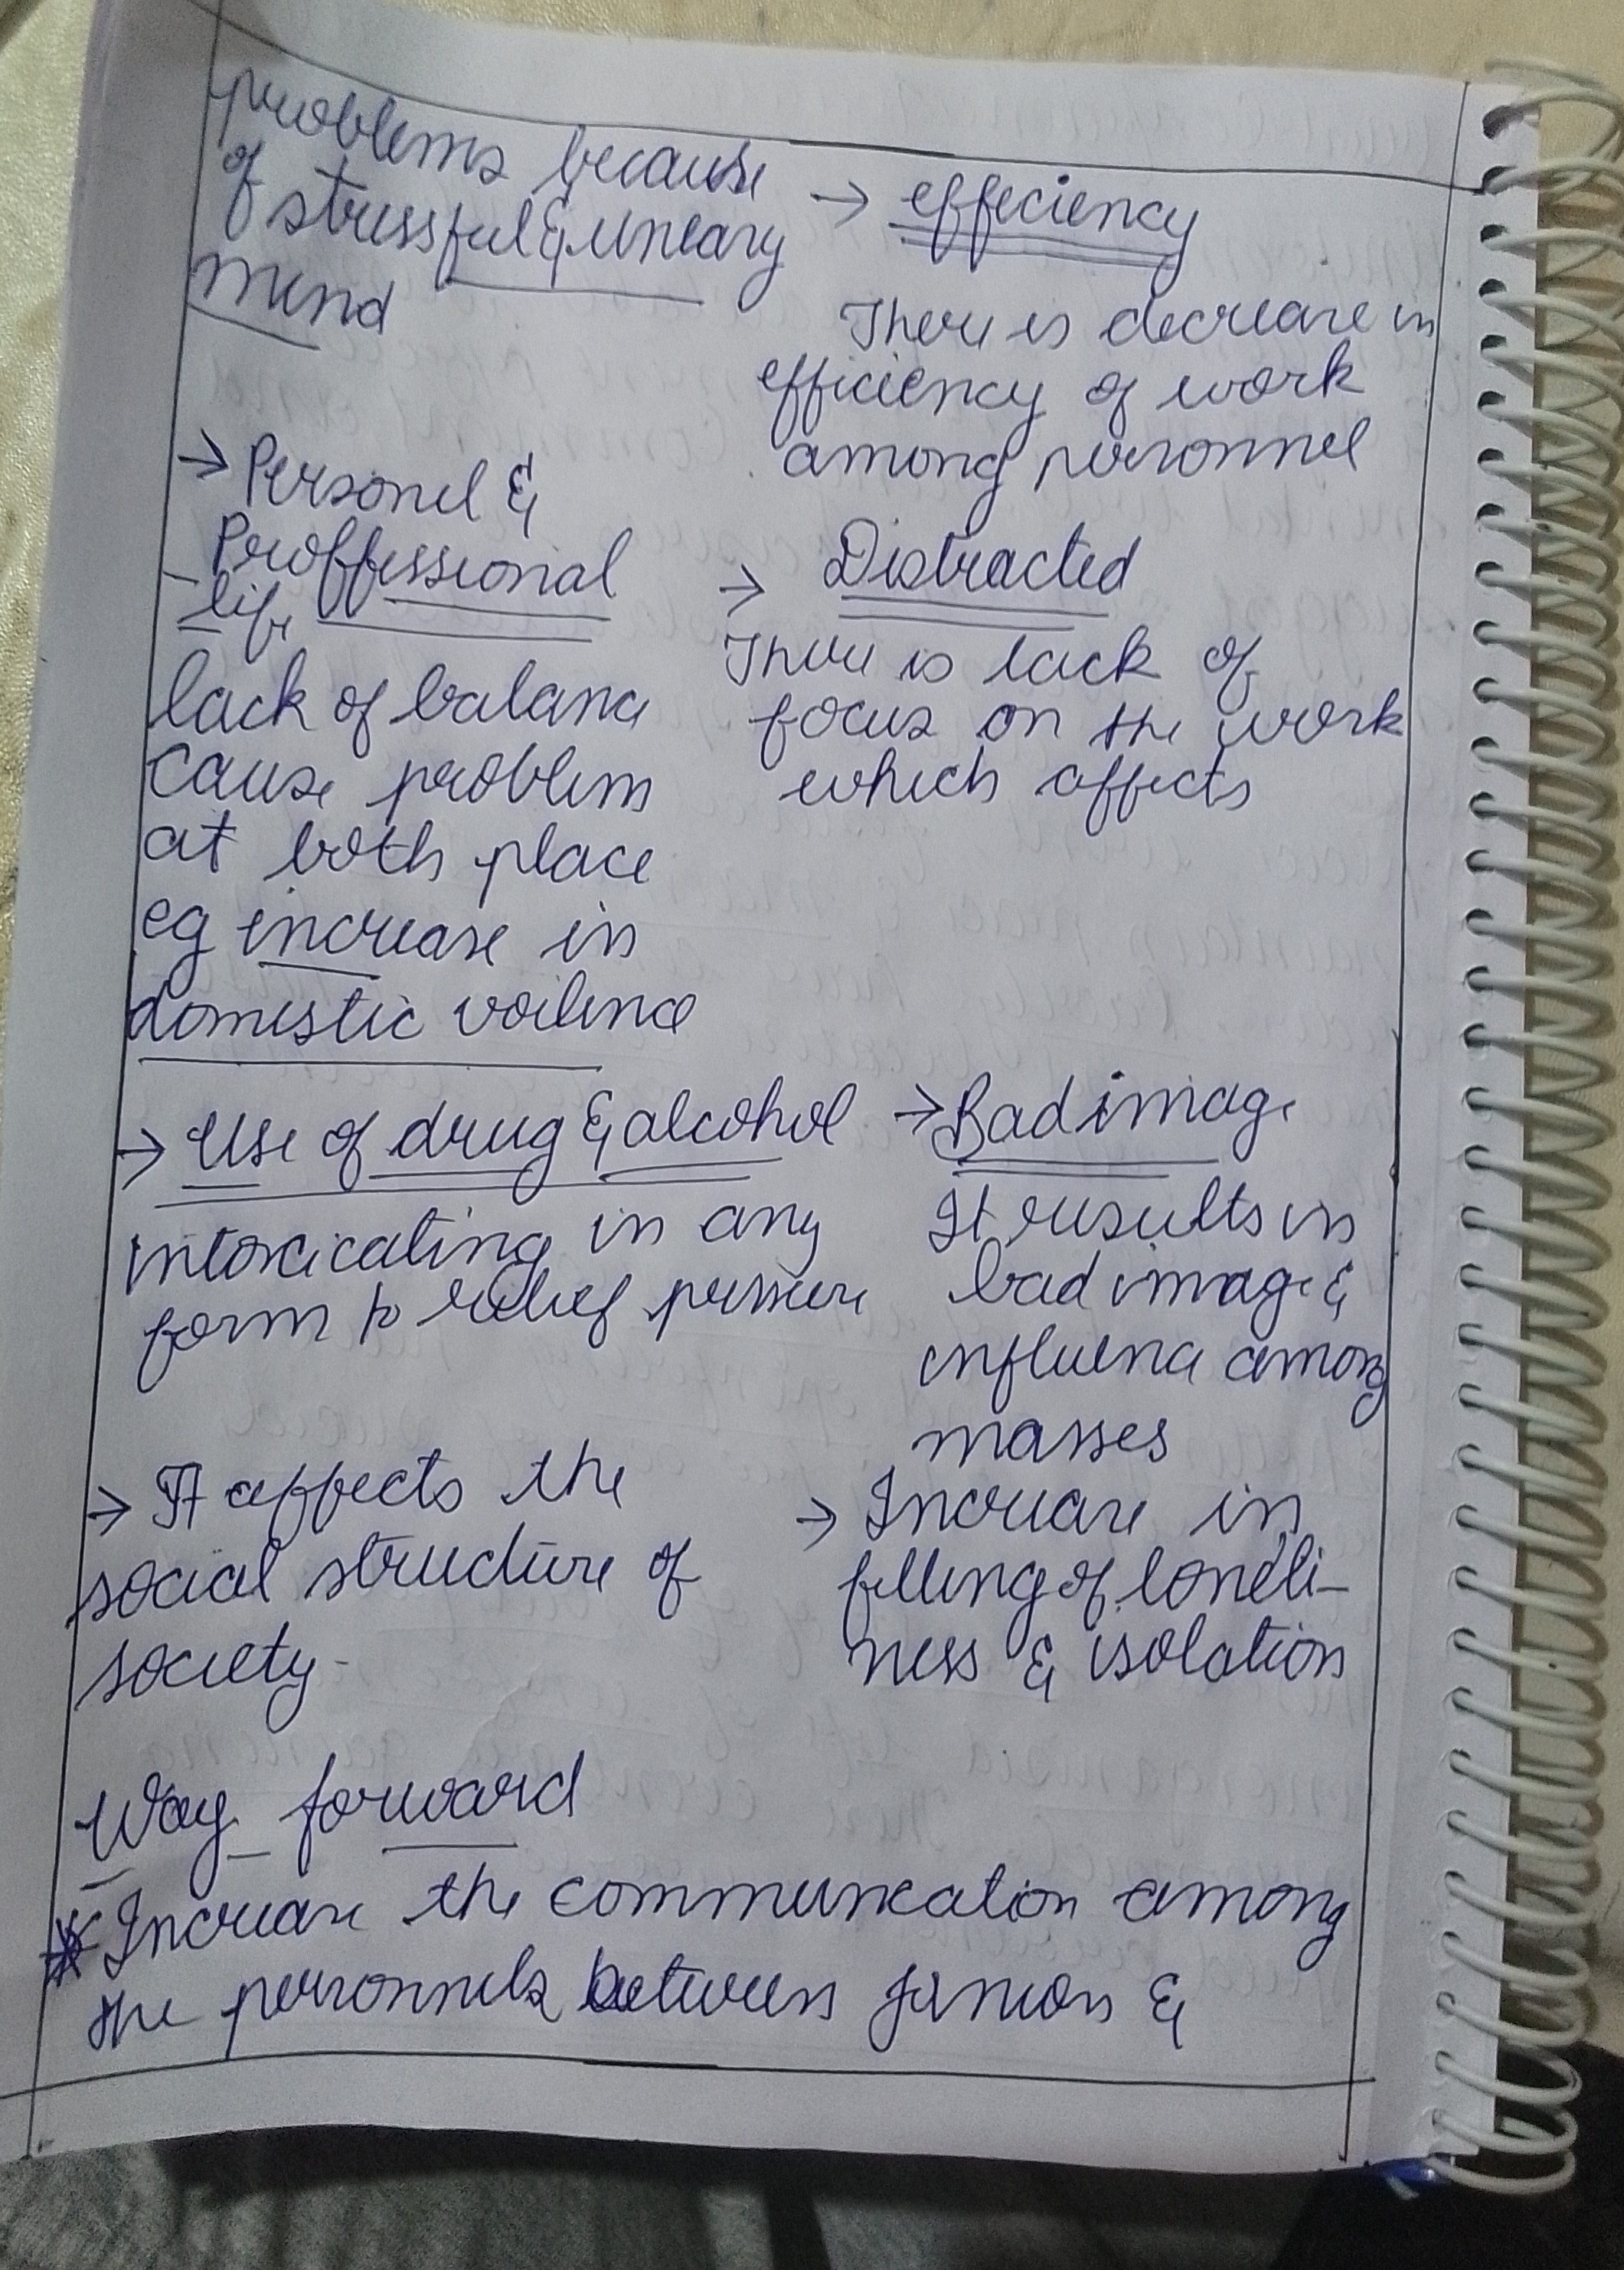 problems because
of stressful & uneasy
mind
→ Personel &
Proffessional
life
lack of balance
cause problem
at both place
eg increase in
domestic voilence
→ Use of drug & alcohol
intoxicating in any
form to relief pressure
→ It affects the
social structure of
society -
→ effeciency
There is decrease in
efficiency of work
among personnel
→ Distracted
There is lack of
focus on the work
which affects
→ Bad image
It results in
bad image &
influence among
masses
→ Increase in
felling of loneli-
ness & isolation
Way forward
* Increase the communication among
the personnels between junior &